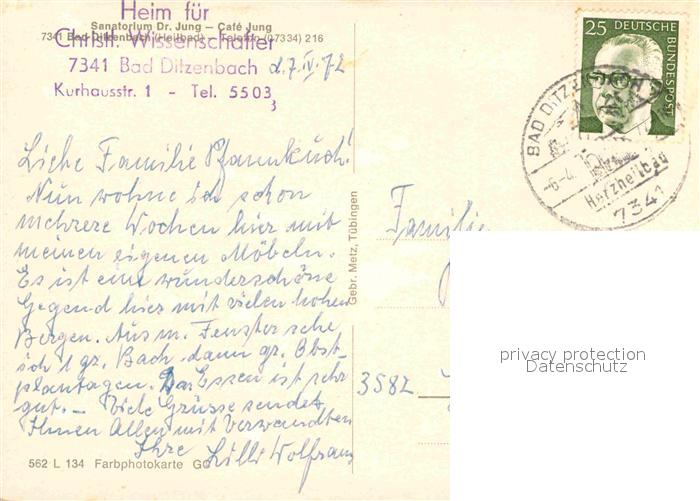 Heim für
Sanatorium Dr. Jung — Café Jung
7341 Bad Ditzenbach (Heilbad) — Telefon (07334) 216
Christl. Wissenschafter
7341 Bad Ditzenbach
Kurhausstr. 1 - Tel. 5503
3
d. 7. IV. 72
Liebe Familie Pfannkuch!
Nun wohne ich schon
mehrere Wochen hier mit
meinen eigenen Möbeln.
Es ist eine wunderschöne
Gegend hier mit vielen hohen
Bergen. Aus m. Fenster sehe
ich 1 gr. Bach dann gr. Obst-
plantagen. Das Essen ist sehr
gut. – Viele Grüsse sendet
Ihnen Allen mit Verwandten
Ihre Lilli Wolfram
562 L 134 Farbphotokarte
Gebr. Metz, Tübingen
25 DEUTSCHE
BUNDESPOST
BAD DITZENBACH
Herzheilbad
7341
Familie
3582
privacy protection
Datenschutz